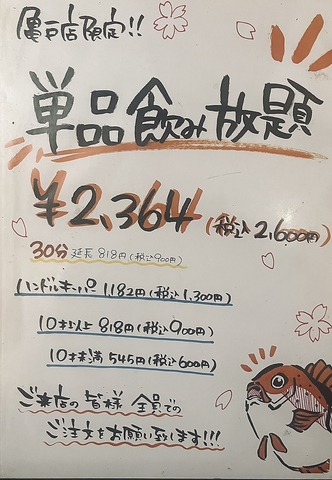 亀戸店限定!!
単品飲み放題
¥2,364(税込2,600円)
30分延長 818円(税込900円)
ハンドルキーパー 1,182円(税込1,300円)
10才以上 818円(税込900円)
10才未満 545円(税込600円)
ご来店の皆様 全員での
ご注文をお願い致します!!!